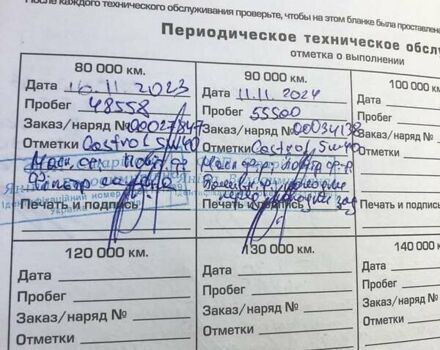 После каждого технического обслуживания проверьте, чтобы на этом бланке была проставлена
Периодическое техническое обслу
отметка о выполнении
80 000 км.
Дата 10.11.2023
Пробег 48558
Заказ/наряд № 00027847
Отметки Castrol 5w40
Масл. ф. Повітр. ф.
Фільтр
Печать и подпись
90 000 км.
Дата 11.11.2024
Пробег 55500
Заказ/наряд № 00034138
Отметки Castrol 5w40
Печать и подпись
100 000
Дата
Пробег
Заказ/на
Отметки
Печать и
120 000 км.
Дата
Пробег
Заказ/наряд №
Отметки
130 000 км.
Дата
Пробег
Заказ/наряд №
Отметки
140 000
Дата
Пробег
Заказ/нар
Отметки